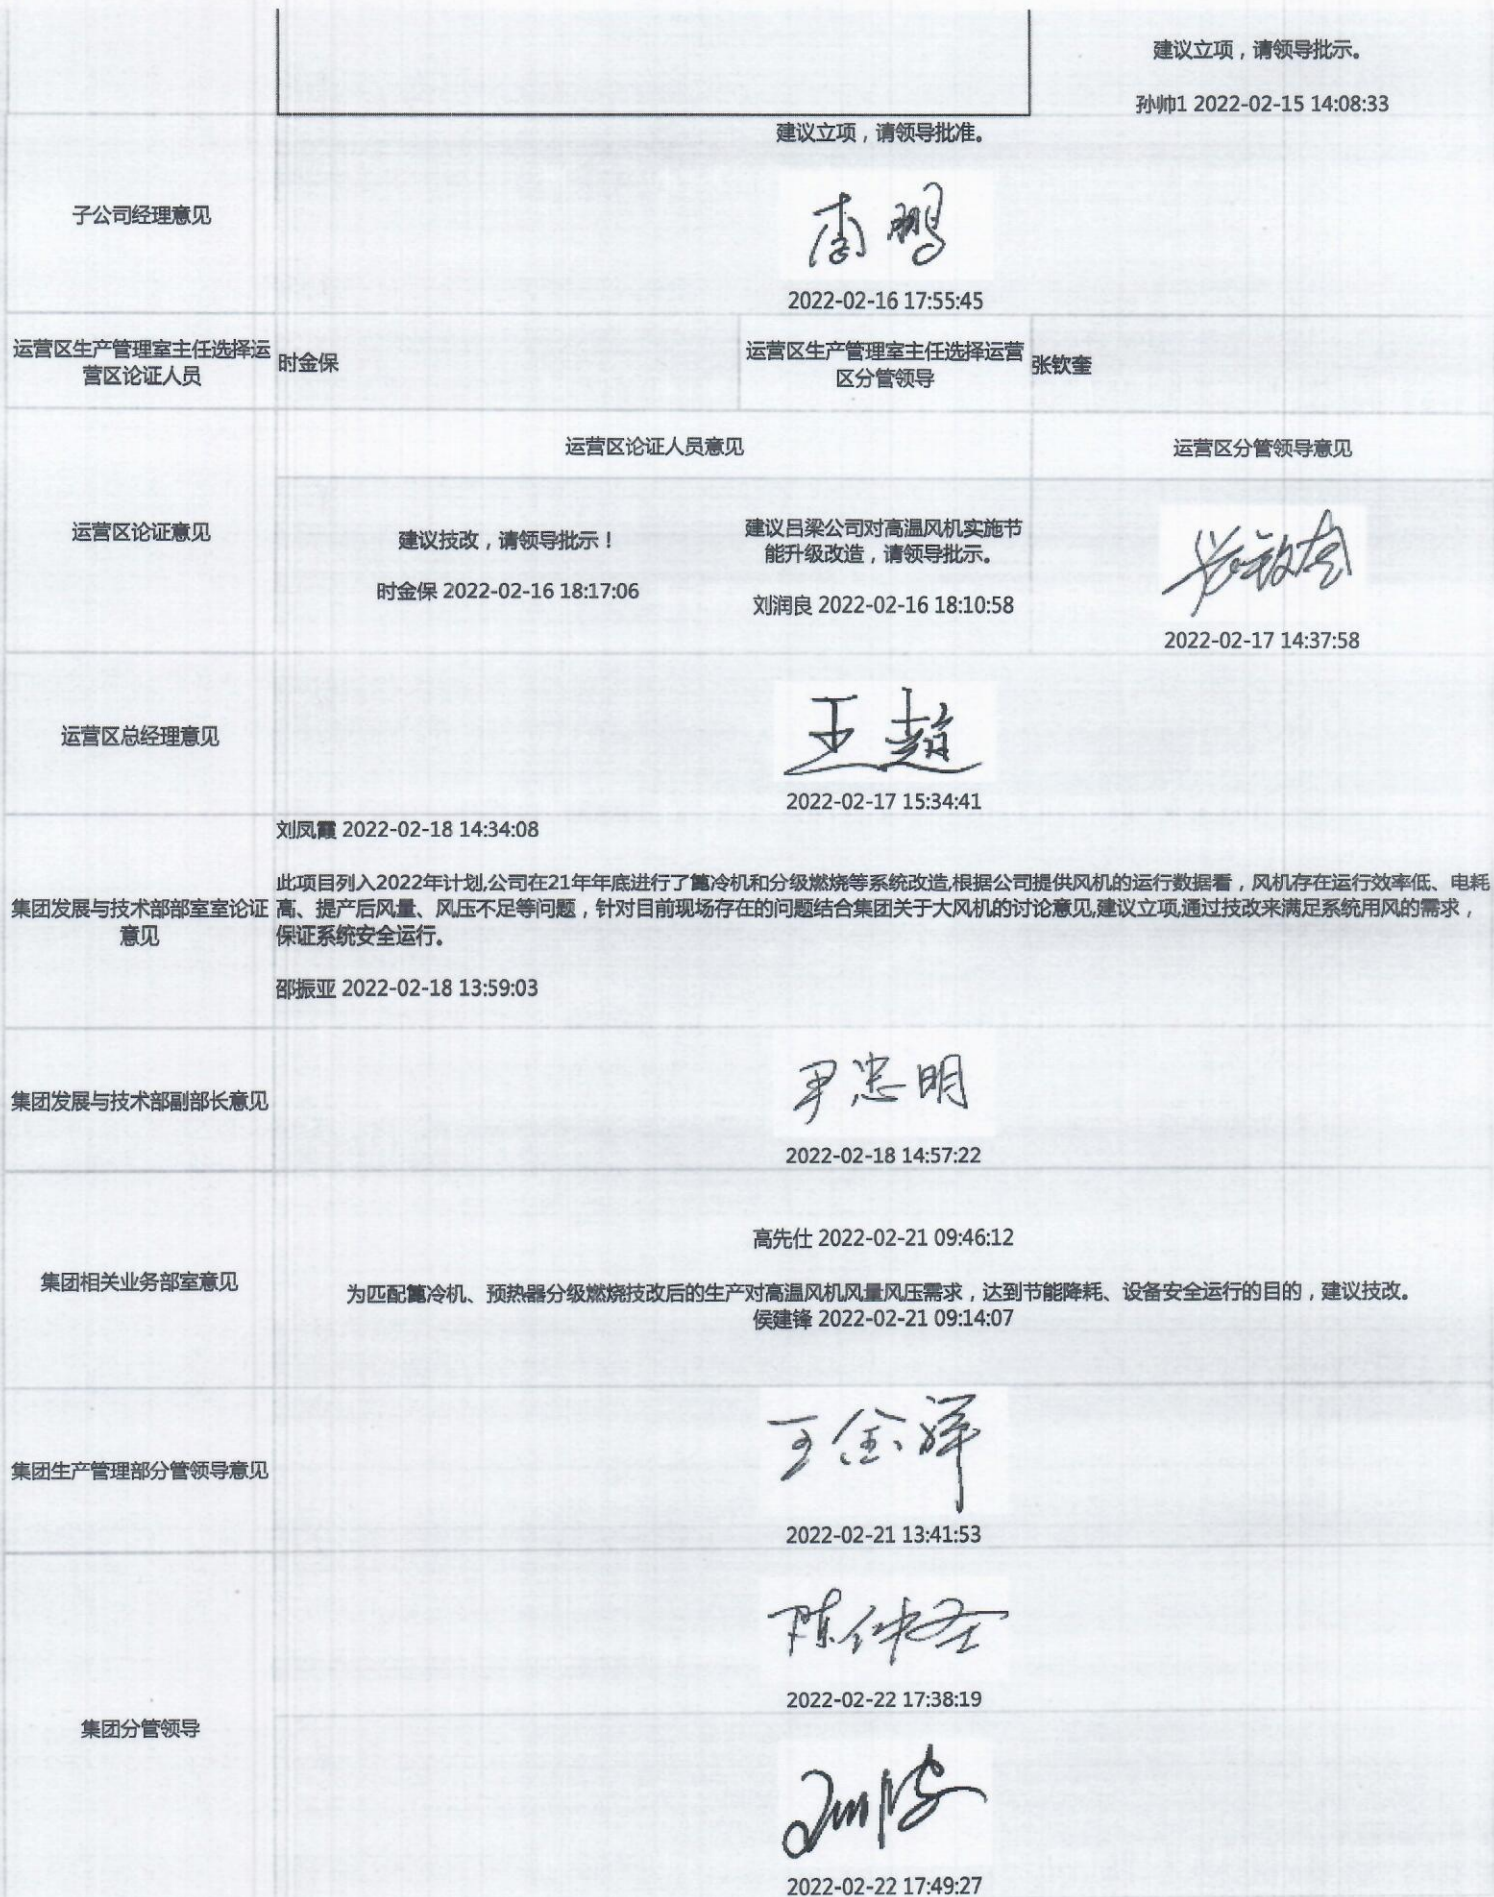 建议立项，请领导批示。
孙帅1 2022-02-15 14:08:33
建议立项，请领导批准。
子公司经理意见
2022-02-16 17:55:45
运营区生产管理室主任选择运
营区论证人员
时金保
运营区生产管理室主任选择运营
区分管领导
张钦奎
运营区论证人员意见
运营区分管领导意见
运营区论证意见
建议技改，请领导批示！
时金保 2022-02-16 18:17:06
建议吕梁公司对高温风机实施节
能升级改造，请领导批示。
刘润良 2022-02-16 18:10:58
2022-02-17 14:37:58
运营区总经理意见
王超
2022-02-17 15:34:41
刘凤霞 2022-02-18 14:34:08
集团发展与技术部部室室论证
意见
此项目列入2022年计划,公司在21年年底进行了篦冷机和分级燃烧等系统改造,根据公司提供风机的运行数据看，风机存在运行效率低、电耗
高、提产后风量、风压不足等问题，针对目前现场存在的问题结合集团关于大风机的讨论意见,建议立项,通过技改来满足系统用风的需求，
保证系统安全运行。
邵振亚 2022-02-18 13:59:03
集团发展与技术部副部长意见
尹忠明
2022-02-18 14:57:22
集团相关业务部室意见
高先仕 2022-02-21 09:46:12
为匹配篦冷机、预热器分级燃烧技改后的生产对高温风机风量风压需求，达到节能降耗、设备安全运行的目的，建议技改。
侯建锋 2022-02-21 09:14:07
集团生产管理部分管领导意见
王金祥
2022-02-21 13:41:53
集团分管领导
陈仲圣
2022-02-22 17:38:19
2022-02-22 17:49:27